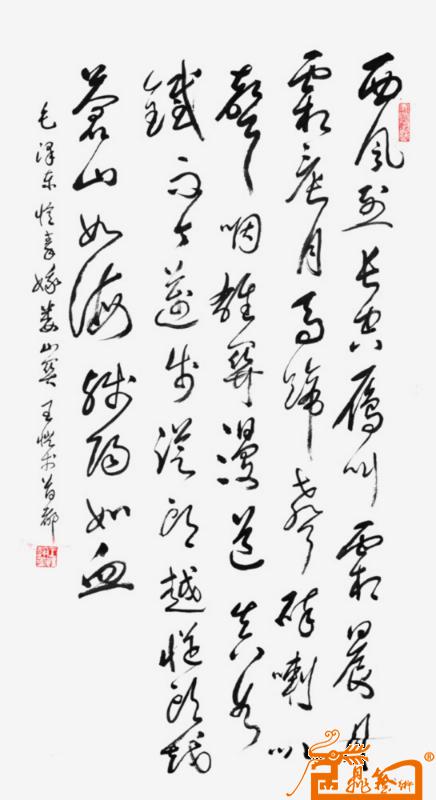 西风烈长空雁叫霜晨月
霜晨月马蹄声碎喇叭
声咽雄关漫道真如
鐵而今迈步从头越从头越
蒼山如海残阳如血
毛泽东忆秦娥娄山关 王 首都